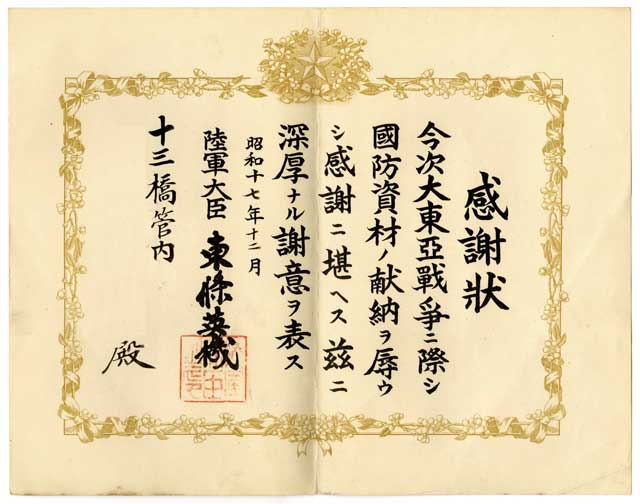 感謝狀
今次大東亞戰爭ニ際シ
國防資材ノ献納ヲ辱ウ
シ感謝ニ堪ヘス茲ニ
深厚ナル謝意ヲ表ス
昭和十七年十二月
陸軍大臣 東條英機
十三橋管内
殿